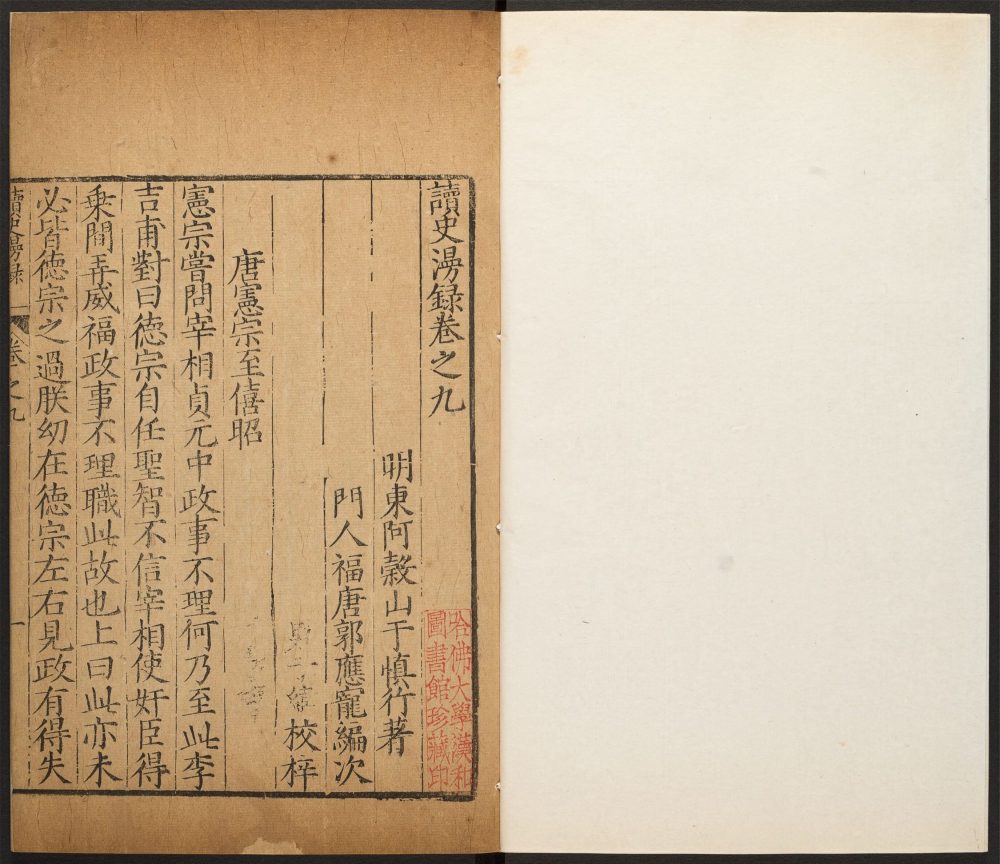 讀史漫録卷之九
明東阿榖山于慎行著
門人福唐郭應寵編次
校梓
唐憲宗至僖昭
憲宗嘗問宰相貞元中政事不理何乃至此李
吉甫對曰德宗自任聖智不信宰相使奸臣得
乗間弄威福政事不理職此故也上曰此亦未
必皆德宗之過朕幼在德宗左右見政有得失
讀史漫録 卷之九 一
哈佛大學漢和
圖書館珍藏印